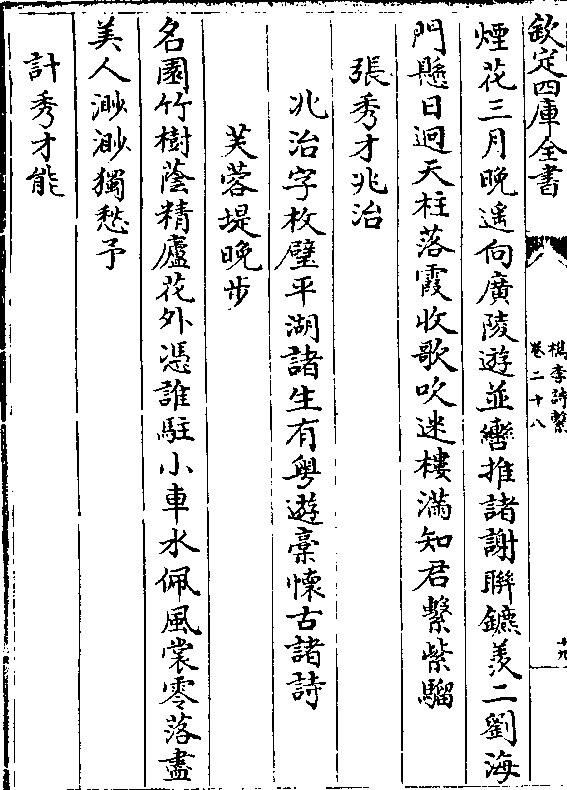 欽定四庫全書
檇李詩繫
卷二十八
十九
煙花三月晩遥向廣陵遊並轡推諸謝聯鑣羡二劉海
門懸日迥天柱落霞收歌吹迷樓滿知君繫紫騮
張秀才兆治
兆治字枚璧平湖諸生有粤遊稾懷古諸詩
芙蓉堤晚步
名園竹樹蔭精廬花外憑誰駐小車水佩風裳零落盡
美人渺渺獨愁予
計秀才能